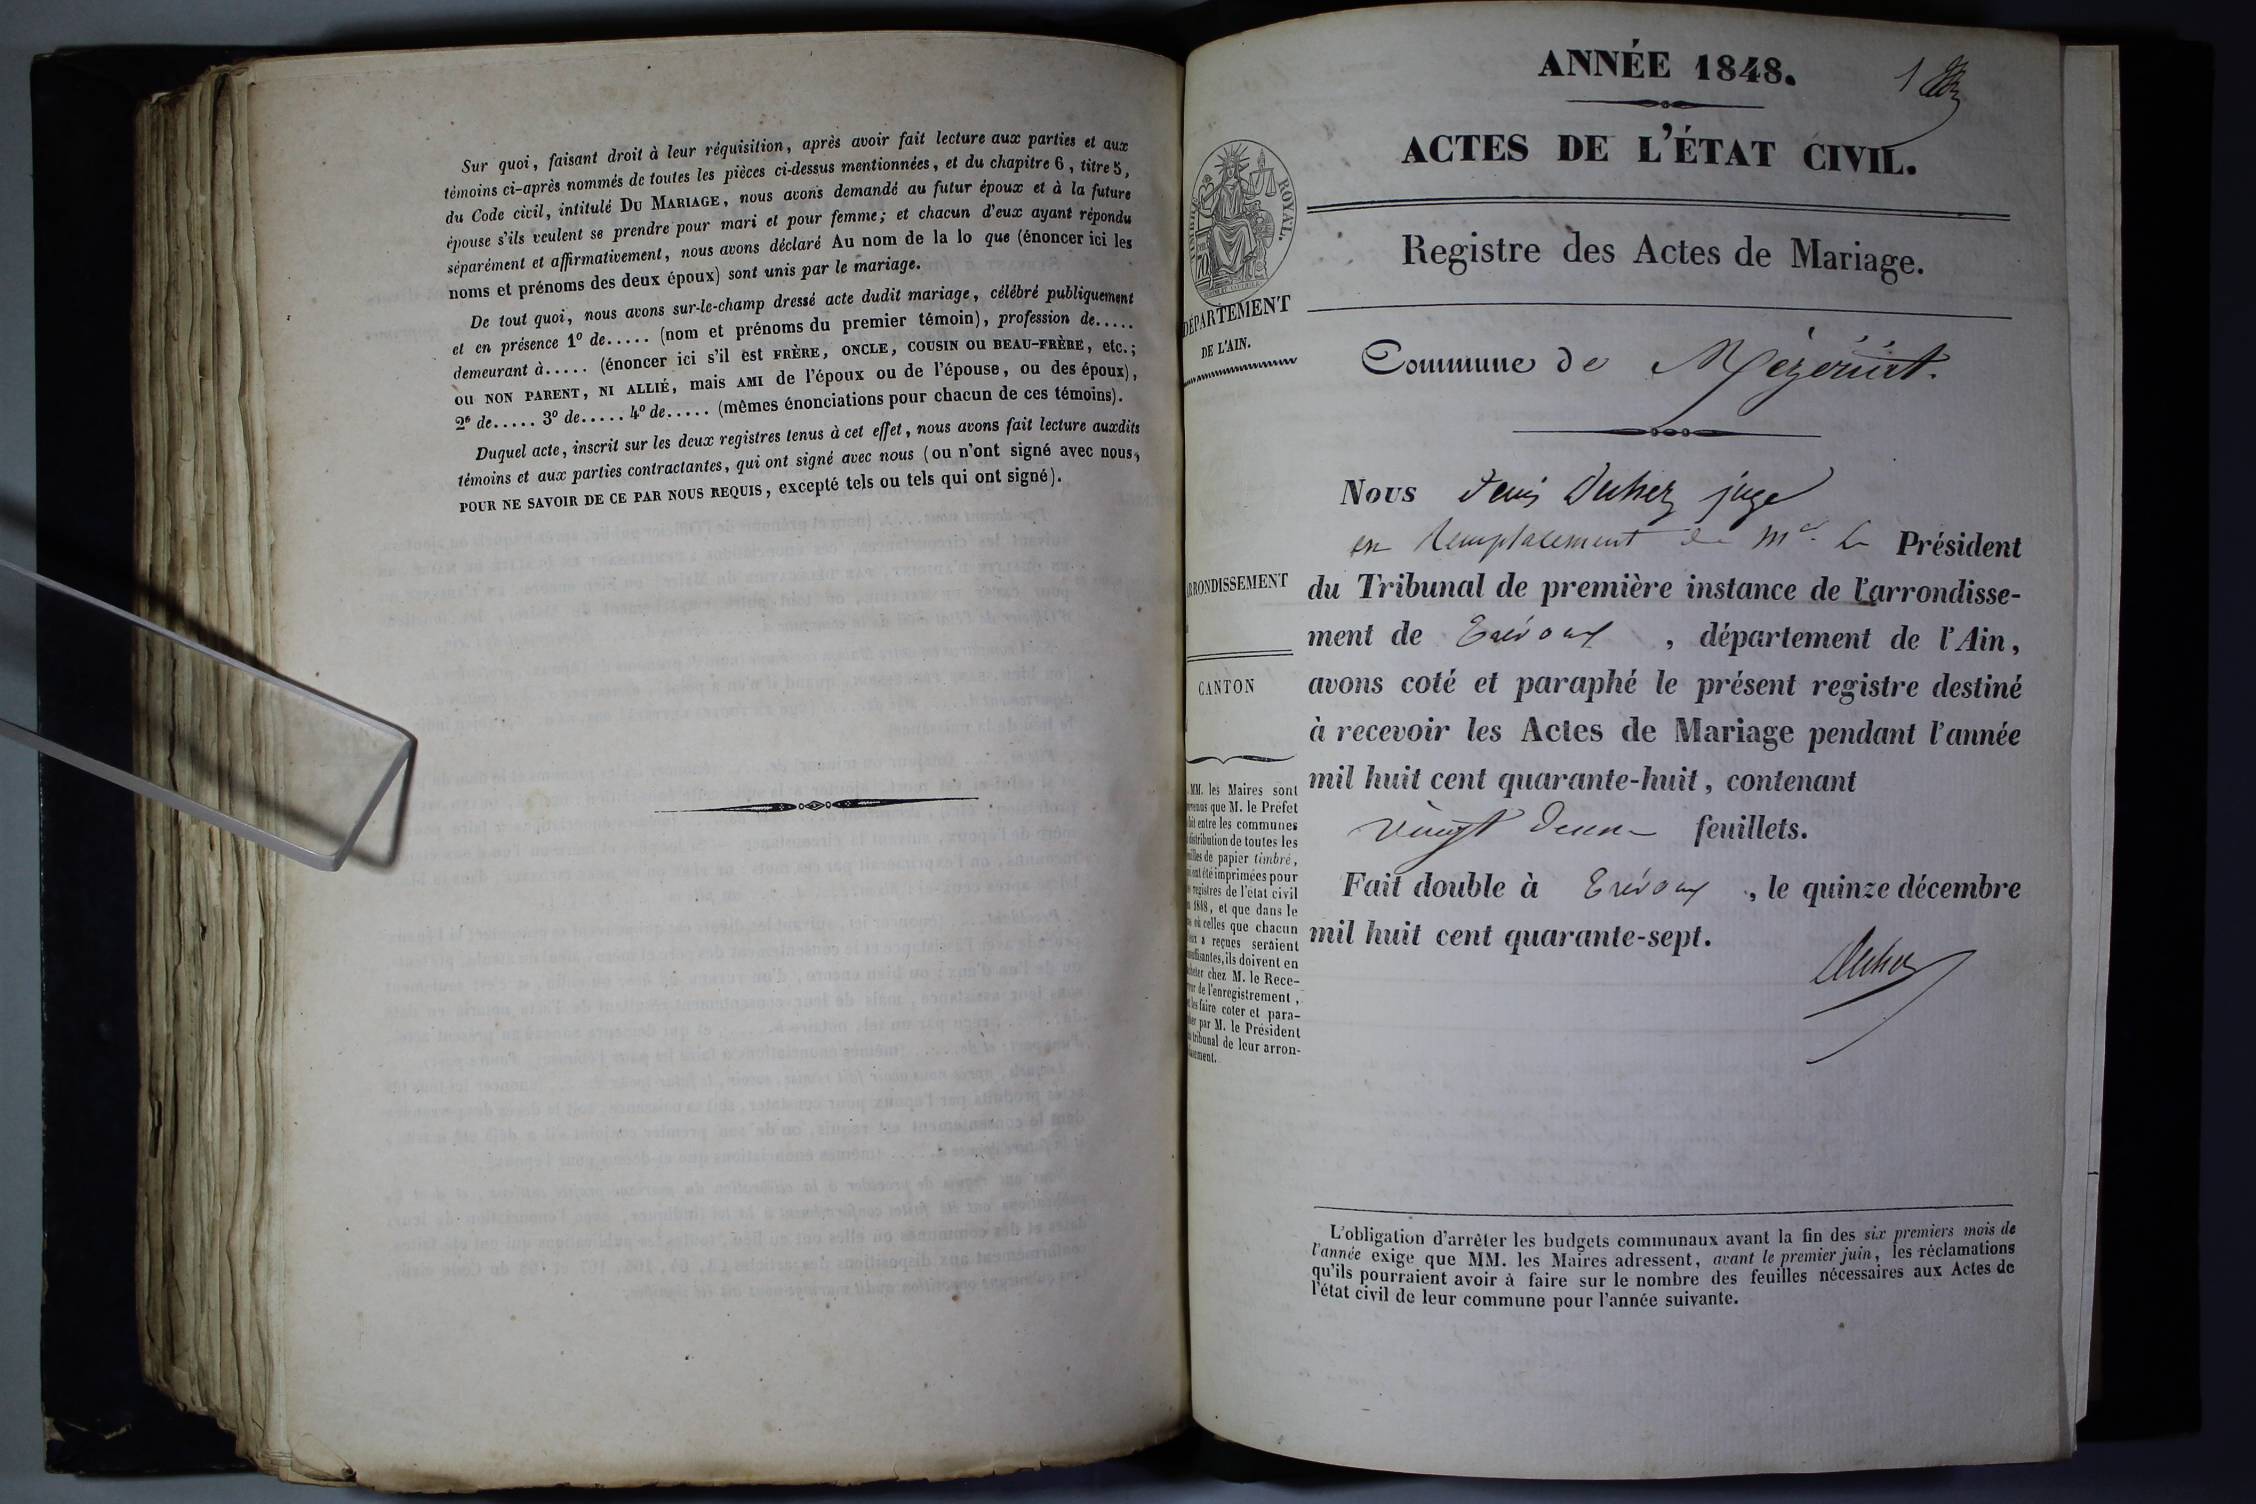 Sur quoi, faisant droit à leur réquisition, après avoir fait lecture aux parties et aux
témoins ci-après nommés de toutes les pièces ci-dessus mentionnées, et du chapitre 6, titre 5,
du Code civil, intitulé DU MARIAGE, nous avons demandé au futur époux et à la future
épouse s'ils veulent se prendre pour mari et pour femme; et chacun d'eux ayant répondu
séparément et affirmativement, nous avons déclaré Au nom de la lo que (énoncer ici les
noms et prénoms des deux époux) sont unis par le mariage.
De tout quoi, nous avons sur-le-champ dressé acte dudit mariage, célébré publiquement
et en présence 1º de..... (nom et prénoms du premier témoin), profession de.....
demeurant à..... (énoncer ici s'il est FRÈRE, ONCLE, COUSIN OU BEAU-FRÈRE, etc.;
OU NON PARENT, NI ALLIÉ, mais AMI de l'époux ou de l'épouse, ou des époux),
2º de..... 3º de..... 4º de..... (mêmes énonciations pour chacun de ces témoins).
Duquel acte, inscrit sur les deux registres tenus à cet effet, nous avons fait lecture auxdits
témoins et aux parties contractantes, qui ont signé avec nous (ou n'ont signé avec nous,
POUR NE SAVOIR DE CE PAR NOUS REQUIS, excepté tels ou tels qui ont signé).
ANNÉE 1848.
1
ACTES DE L'ÉTAT CIVIL.
TIMBRE ROYAL.
Registre des Actes de Mariage.
DÉPARTEMENT
DE L'AIN.
Commune de Mézériat.
NOUS Denis Duhez juge
en remplacement de Mr le Président
du Tribunal de première instance de l'arrondisse-
ment de Trévoux, département de l'Ain,
avons coté et paraphé le présent registre destiné
à recevoir les Actes de Mariage pendant l'année
mil huit cent quarante-huit, contenant
vingt deux feuillets.
Fait double à Trévoux, le quinze décembre
mil huit cent quarante-sept.
Duhez
ARRONDISSEMENT
CANTON
MM. les Maires sont
que M. le Préfet
entre les communes
distribution de toutes les
de papier timbré,
ont été imprimées pour
registres de l'état civil
1848, et que dans le
où celles que chacun
a reçues seraient
ils doivent en
chez M. le Rece-
de l'enregistrement,
les faire coter et para-
par M. le Président
tribunal de leur arron-
L'obligation d'arrêter les budgets communaux avant la fin des six premiers mois de
l'année exige que MM. les Maires adressent, avant le premier juin, les réclamations
qu'ils pourraient avoir à faire sur le nombre des feuilles nécessaires aux Actes de
l'état civil de leur commune pour l'année suivante.